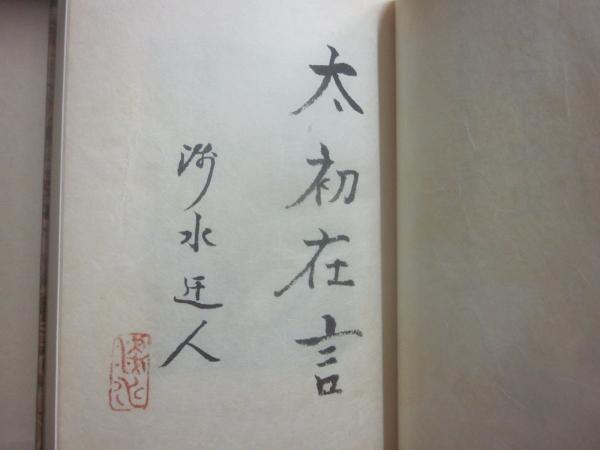 太初在言
渉水迂人